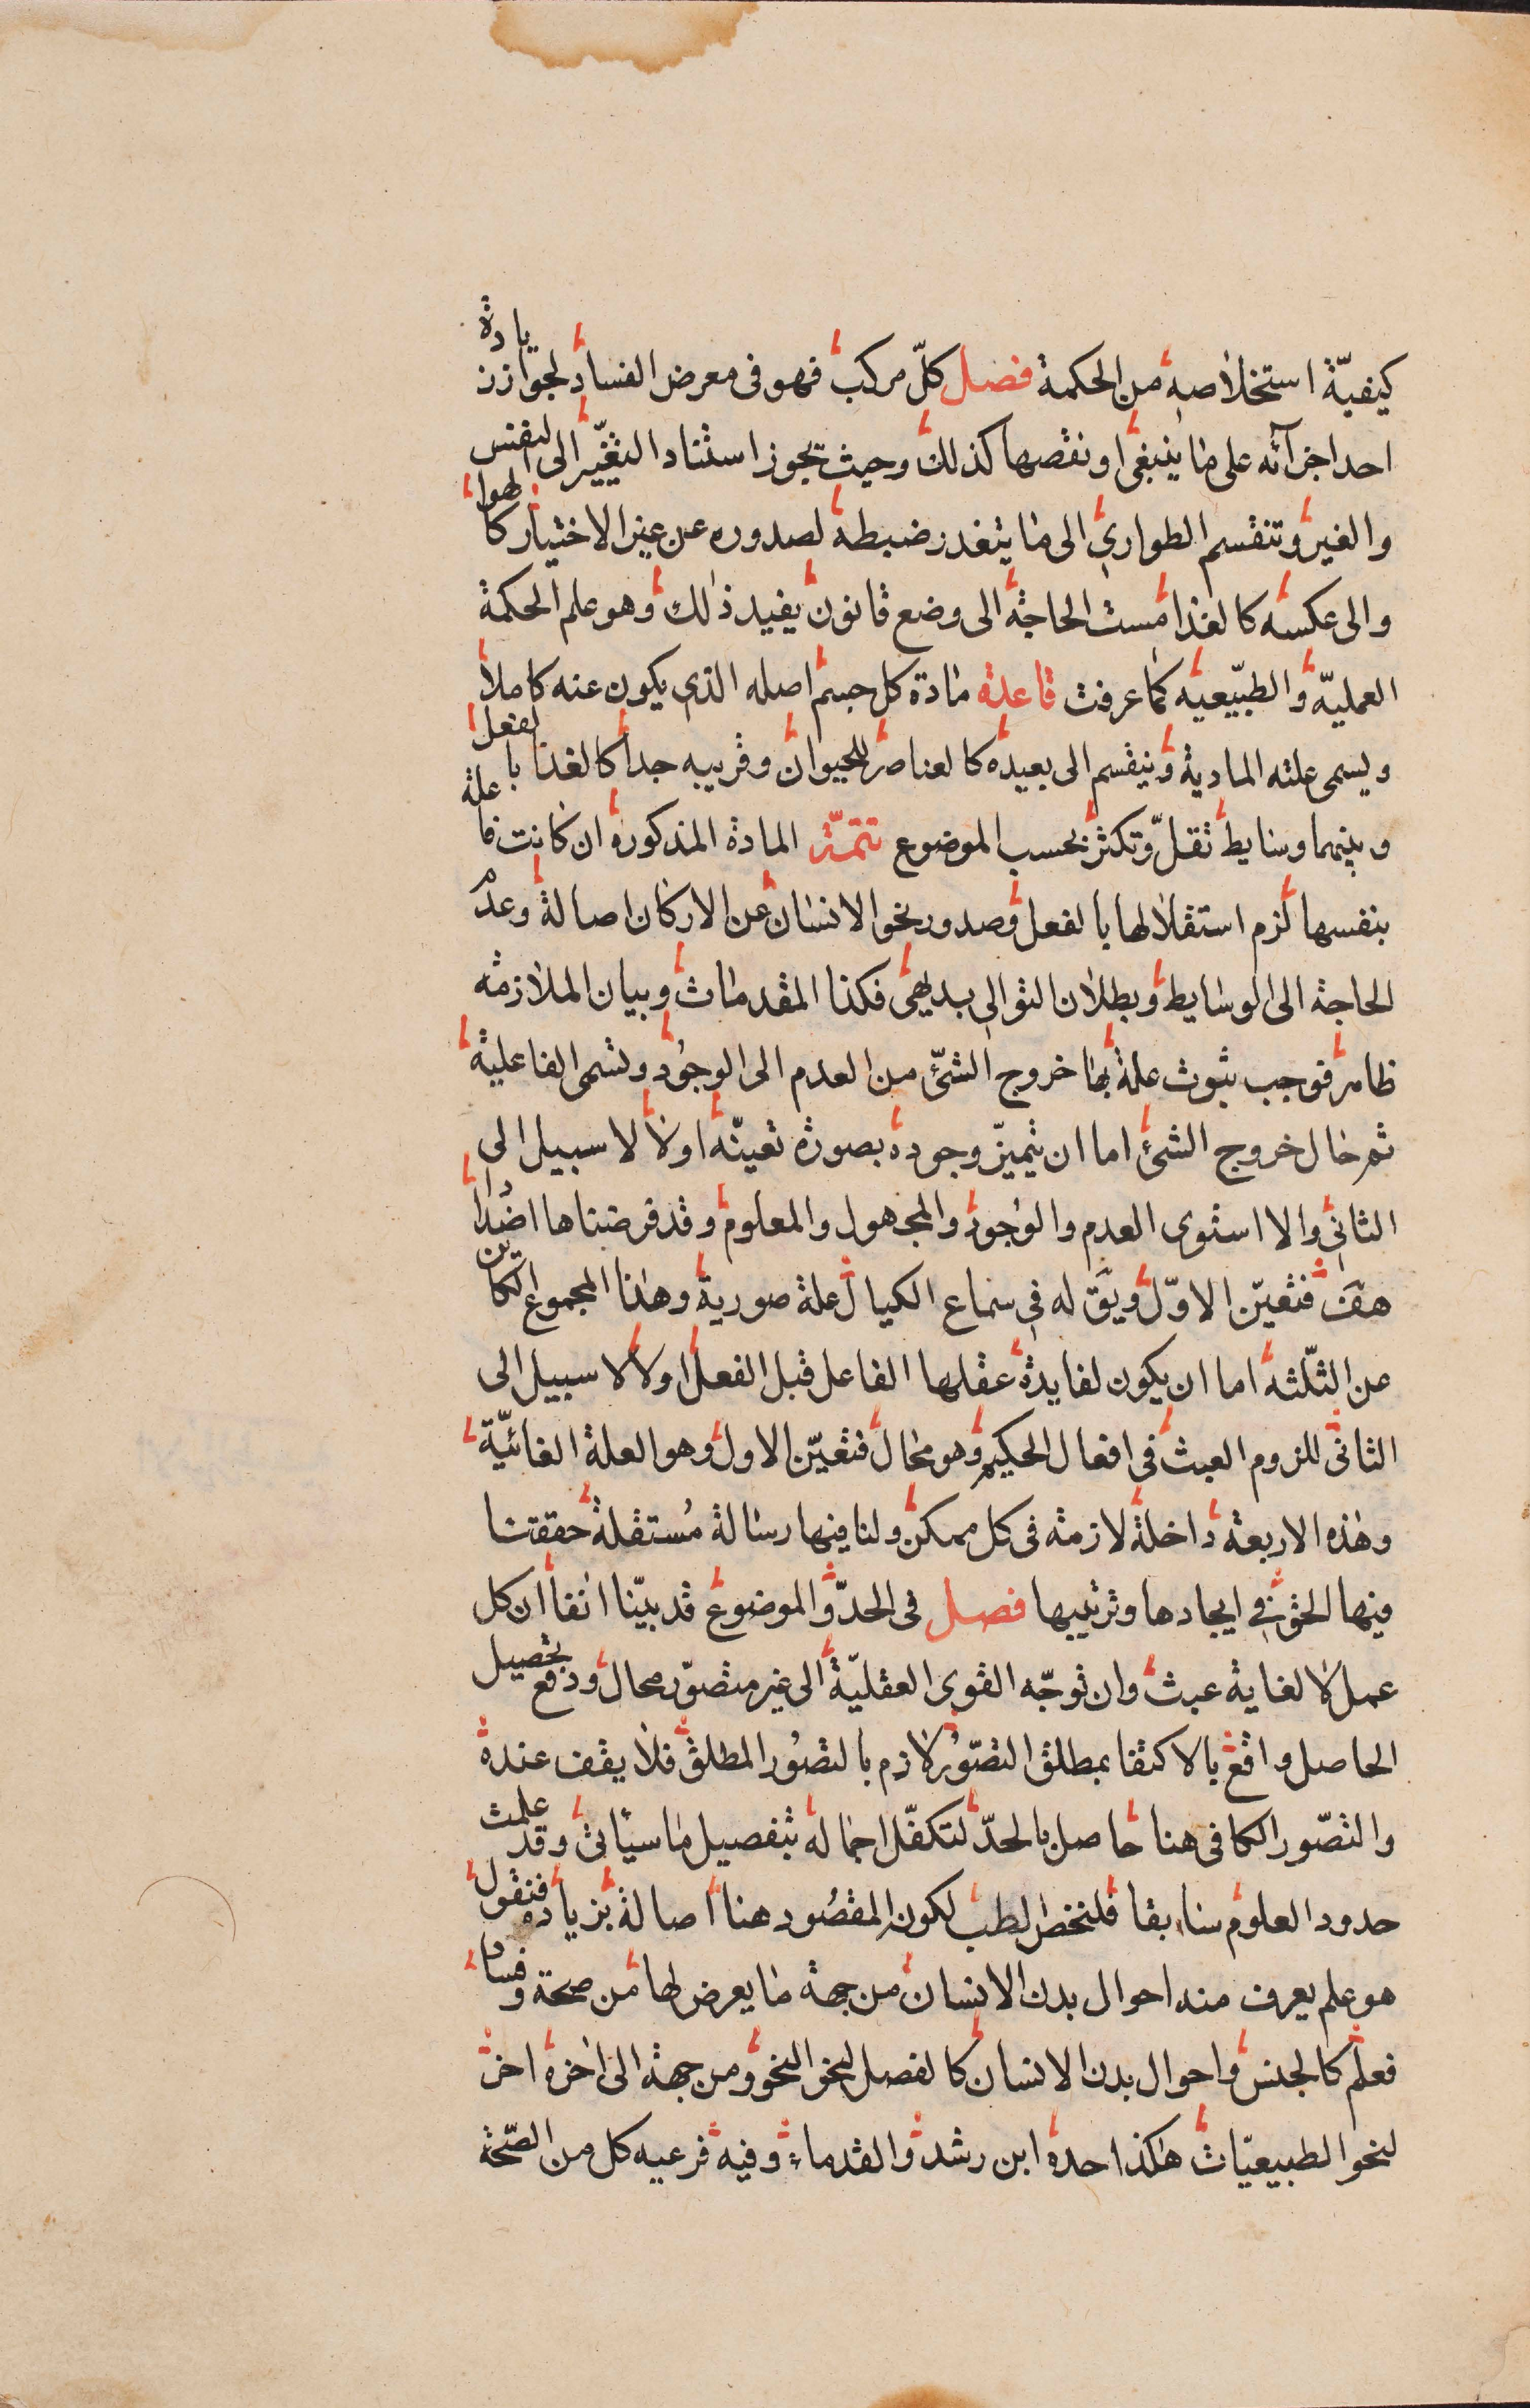 كيفيّة استخلاصه من الحكمة فصل كلّ مركب فهو فى معرض الفساد لجواز زيادة
احد اجزآئه على ما ينبغى او نقصها كذلك وحيث يجوز استناد التغيّر الى النفس
والغير وتنقسم الطوارى الى ما يتعذر ضبطه لصدوره عن غير الاختيار كالهوا
والى عكسه كالغذا مست الحاجة الى وضع قانون يفيد ذلك وهو علم الحكمة
العمليّة والطبّيعيه كما عرفت قاعدة مادة كل جسم اصله الذى يكون عنه كاملا
ويسمى علته المادية وينقسم الى بعيده كالعناصر للحيوان وقريبه جدا كالغذا بالفعل
وبينهما وسايط تقلّ وتكثر بحسب الموضوع تتمّة المادة المذكورة ان كانت فاعلة
بنفسها لزم استقلالها بالفعل وصدور نحو الانسان عن الاركان اصالة وعدم
الحاجة الى الوسايط وبطلان التوالى بديهى فكذا المقدمات وبيان الملازمة
ظاهر فوجب ثبوت علة بها خروج الشئ من العدم الى الوجود وتسمى الفاعلية
ثم حال خروج الشئ اما ان يتميزّ وجوده بصورة تعينّه اولا لا سبيل الى
الثانى والا استوى العدم والوجود والمجهول والمعلوم وقد فرضناها اضدادا
هف فتعيّن الاوّل ويق له فى سماع الكيال علة صورية وهذا المجموع الكاين
عن الثلثه اما ان يكون لفايدة عقلها الفاعل قبل الفعل اولا لا سبيل الى
الثانى للزوم العبث فى افعال الحكيم وهو محال فتعيّن الاول وهو العلة الغائيّة
وهذه الاربعة داخلة لازمة فى كل ممكن ولنا فيها رسالة مستقلة حققنا
فيها الحق فى ايجادها وترتيبها فصل فى الحدّ والموضوع قد بيّنا انفا ان كل
عمل لا لغاية عبث وان توجّه القوى العقليّة الى غير متصوّر محال ودفع تحصيل
الحاصل واقع بالاكتفا بمطلق التصّور لازم بالتصور المطلق فلا يقف عنده
والتصّور الكافى هنا حاصل بالحدّ لتكفّل اجماله بتفصيل ما سيأتى وقد علمت
حدود العلوم سابقا فلنخص الطب لكون المقصود هنا اصالة بزيادة فنقول
هو علم يعرف منه احوال بدن الانسان من جهة ما يعرض لها من صحة وفساد
فعلم كالجنس واحوال بدن الانسان كالفصل لنحو النحو ومن جهة الى اخره اخر
لنحو الطبيعيّات هكذا حده ابن رشد والقدماء وفيه فرعيه كل من الصّحة